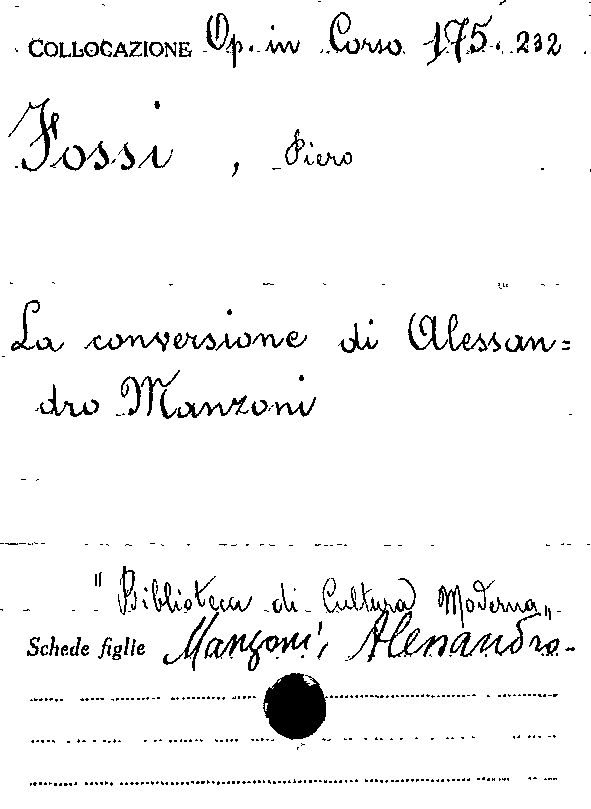 COLLOCAZIONE Op. in Corso 175. 232
Fossi, Piero
La conversione di Alessan=
dro Manzoni
"Biblioteca di Cultura Moderna"
Schede figlie Manzoni, Alessandro.